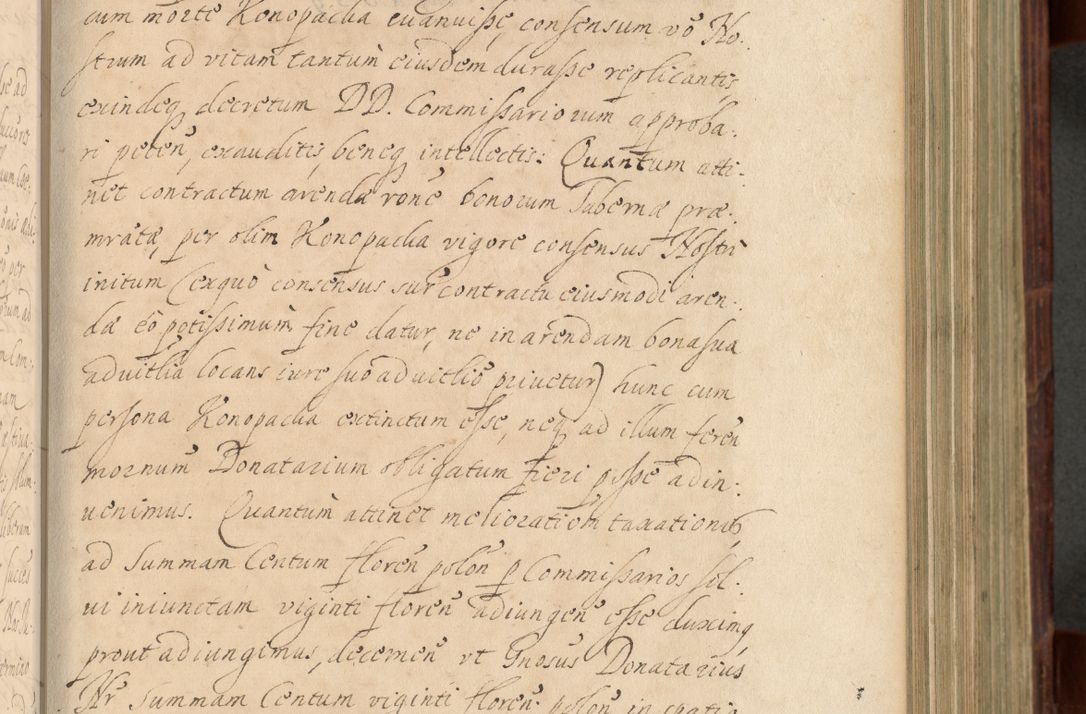 cum morte Konopacka evanuiſse, conſensum vō No-
ſtrum ad vitam tantum eiusdem duraſse replicantis,
exindeq decretum DD. Commiſsariorum approba-
ri peteñ, exauditis beneq intellectis: Quantum atti-
net contractum arendæ roñe bonorum Tabernæ præ-
mrãtæ, per olim Konopacka vigore conſensus Noſtri
initum (exquò consensus sup contractu eiusmodi aren-
dæ eò potiſsimum fine datur, ne in arendam bona sua
advitlia locans iure suo advitliō privetur) hunc cum
perſona Konopacka extinctum eſse, neq ad illum fereñ
mornum Donatarium obligatum fieri poſse adin-
uenimus. Quantum attinet meliorationū taxationis
ad Summam Centum floreñ poloñ p Commiſsarios ſol-
ui iniunctam viginti floreñ adiungeñ eſse duximq
prout adiungimus, decerneñ vt Gnosus Donatarius
Hr Summam Centum viginti floreñ poloñ in spatio